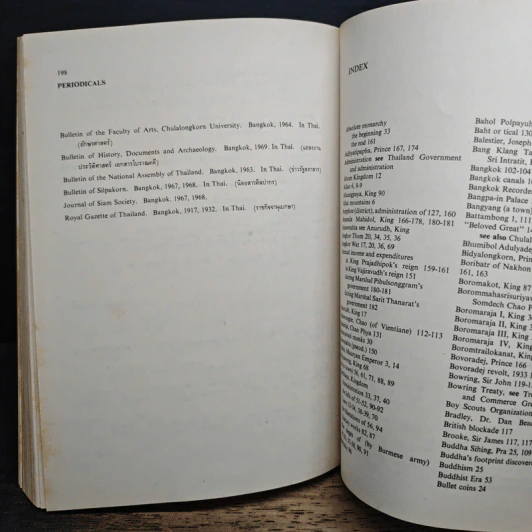 198
PERIODICALS
Bulletin of the Faculty of Arts, Chulalongkorn University. Bangkok, 1964. In Thai.
(อักษรศาสตร์)
Bulletin of History, Documents and Archaeology. Bangkok, 1969. In Thai. (แถลงงาน
ประวัติศาสตร์ เอกสารโบราณคดี)
Bulletin of the National Assembly of Thailand. Bangkok, 1963. In Thai. (ข่าวรัฐสภา)
Bulletin of Silpakorn. Bangkok, 1967, 1968. In Thai. (นิตยสารศิลปากร)
Journal of Siam Society. Bangkok, 1967, 1968.
Royal Gazette of Thailand. Bangkok, 1917, 1932. In Thai. (ราชกิจจานุเบกษา)
INDEX
Absolute monarchy
the beginning 33
the end 161
Prince 167, 174
Administration see Thailand Government
and administration
Kingdom 12
6, 9
King 90
mountains 6
(district), administration of 127, 160
Mahidol, King 166-178, 180-181
see Anurudh, King
Thom 20, 34, 35, 36
Wat 17, 20, 36, 69
income and expenditures
King Prajadhipok's reign 159-161
King Vajiravudh's reign 151
Marshal Pibulsonggram's
government 180-181
Marshal Sarit Thanarat's
government 182
King 17
Chao (of Vientiane) 112-113
Chao Phya 131
monks 30
(pseud.) 150
Emperor 3, 14
King 68
56, 61, 71, 88, 89
33, 37, 40
of 51-52, 90-92
of 56, 94
works 82, 87
(by Burmese army)
Bahol Polpayuh
Baht or tical 130
Balestier, Joseph
Bang Klang Ta
Sri Intratit,
Bangkok 102-104
Bangkok canals
Bangkok Recorder
Bangpa-in Palace
Bangyang (a town)
Battambong 1, 111
"Beloved Great"
see also Chula
Bhumibol Adulyadej
Bidyalongkorn, Prin
Boribatr of Nakhon
161, 163
Boromakot, King 87
Borommahasrisuriyav
Somdech Chao P
Boromaraja I, King
Boromaraja II, King
Boromaraja III, King
Boromaraja IV, King
Boromtrailokanat, King
Bovoradej, Prince 166
Bovoradej revolt, 1933
Bowring, Sir John 119-
Bowring Treaty, see Tr
and Commerce Gre
Boy Scouts Organization
Bradley, Dr. Dan Bea
British blockade 117
Brooke, Sir James 117,
Buddha Sihing, Pra 25, 109
Buddha's footprint discover
Buddhism 25
Buddhist Era 53
Bullet coins 24